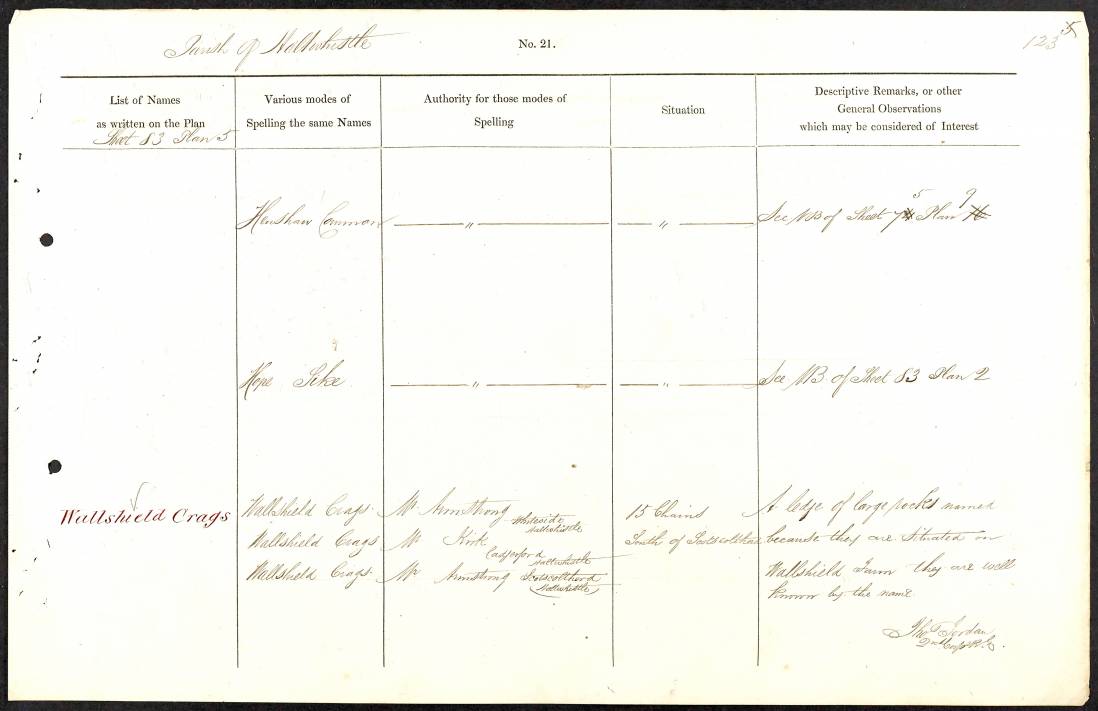 Parish of Haltwhistle
No. 21.
123
5
List of Names
as written on the Plan
Sheet 83 Plan 5
Various modes of
Spelling the same Names
Authority for those modes of
Spelling
Situation
Descriptive Remarks, or other
General Observations
which may be considered of Interest
Henshaw Common
"
"
See NB of Sheet 75 Plan 9
Hope Sike
"
"
See NB of Sheet 83 Plan 2
Wallshield Crags
Wallshield Crags
Wallshield Crags
Wallshield Crags
Mr Armstrong Whiteside
Haltwhistle
Mr Kirk
Haltwhistle
Mr Armstrong Scotscoltherd
Haltwhistle
15 Chains
South of Scotscolthard
A ledge of large rocks named
because they are situated on
Wallshield Farm they are well
known by the name
Thos Jordan
2nd Corpl R.E.